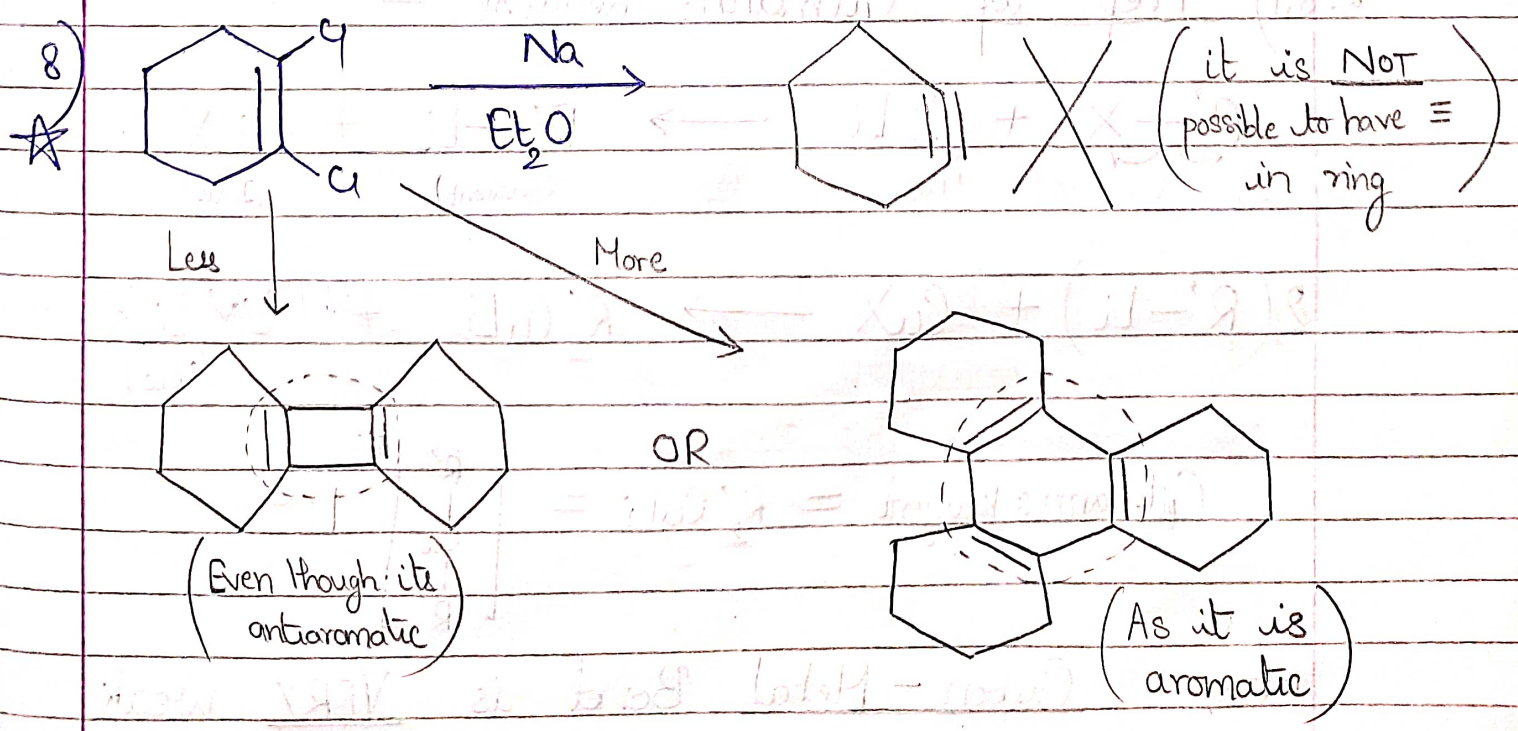 8)
Cl
Na
Et2O
Cl
(it is NOT
possible to have ≡
in ring)
Less
More
OR
(Even though its
antiaromatic)
(As it is
aromatic)